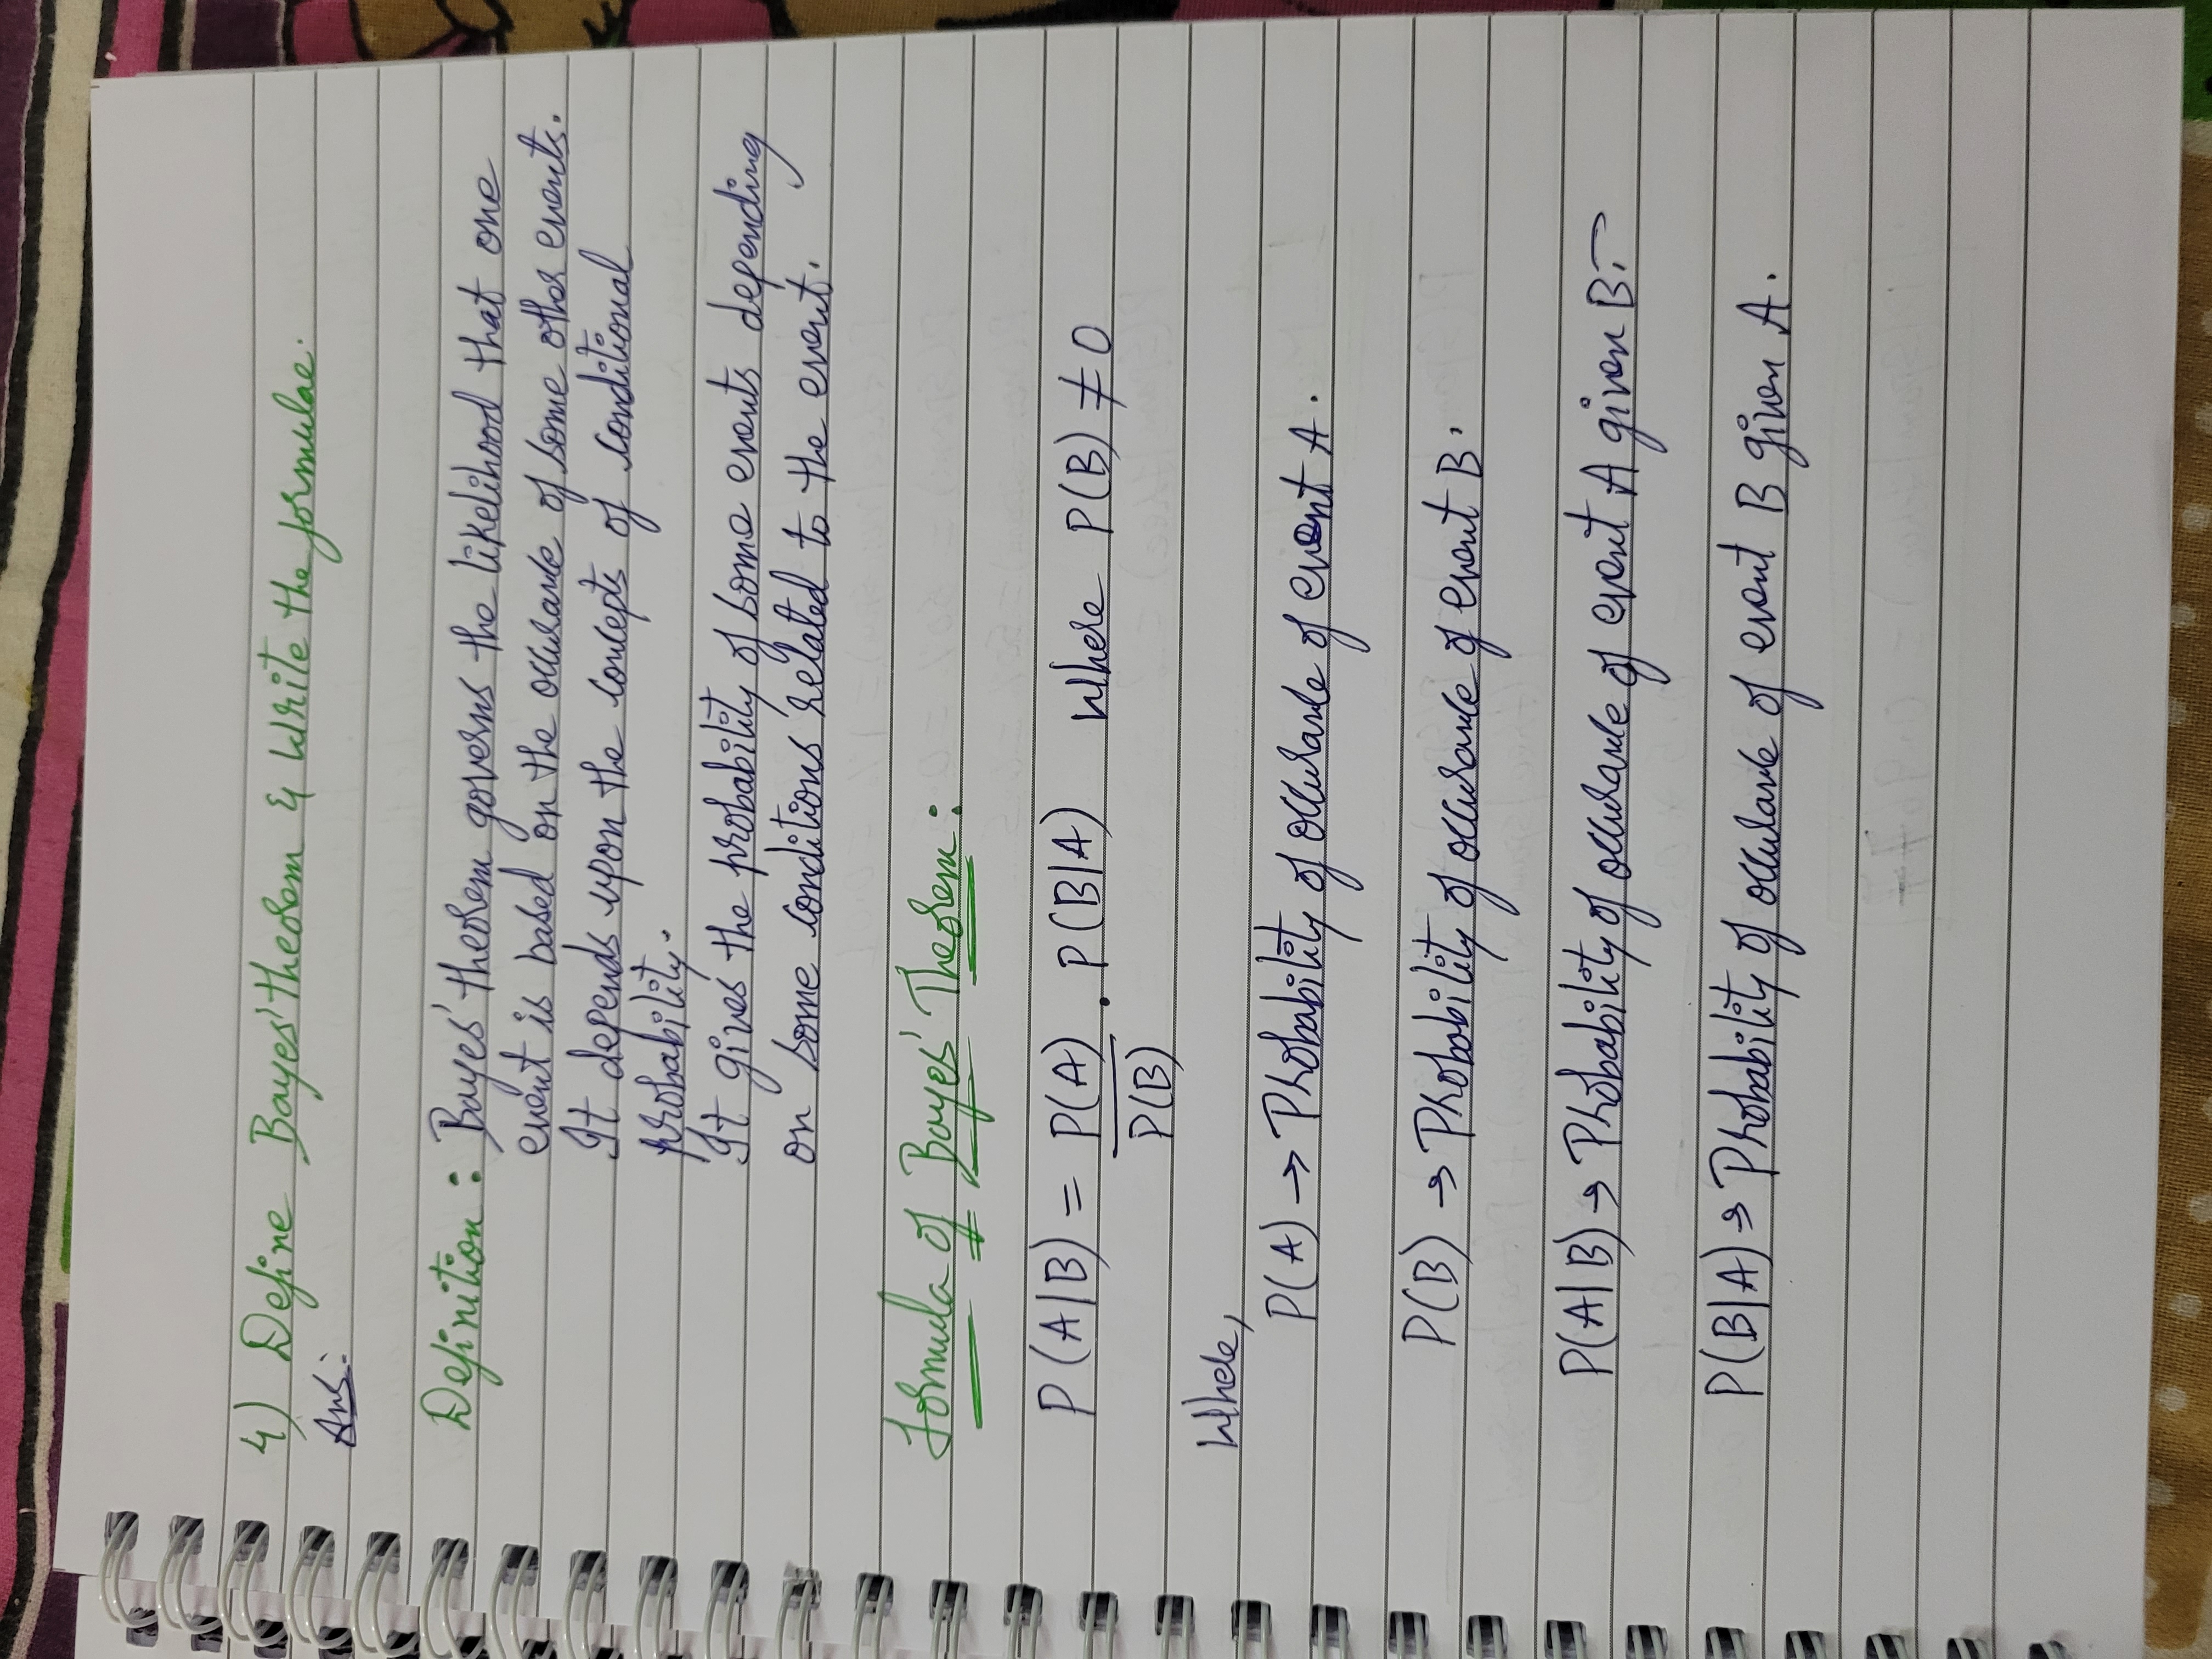 4) Define Bayes' theorem & Write the formulae.
Ans:
Definition : Bayes' theorem governs the likelihood that one
event is based on the occurance of some other events.
It depends upon the concepts of conditional
probability.
It gives the probability of some events depending
on some conditions related to the event.
Formula of Bayes' Theorem :
P(A|B) = P(A)/P(B) . P(B|A) Where P(B) ≠ 0
Where,
P(A) → Probability of occurance of event A.
P(B) → Probability of occurance of event B.
P(A|B) → Probability of occurance of event A given B.
P(B|A) → Probability of occurance of event B given A.